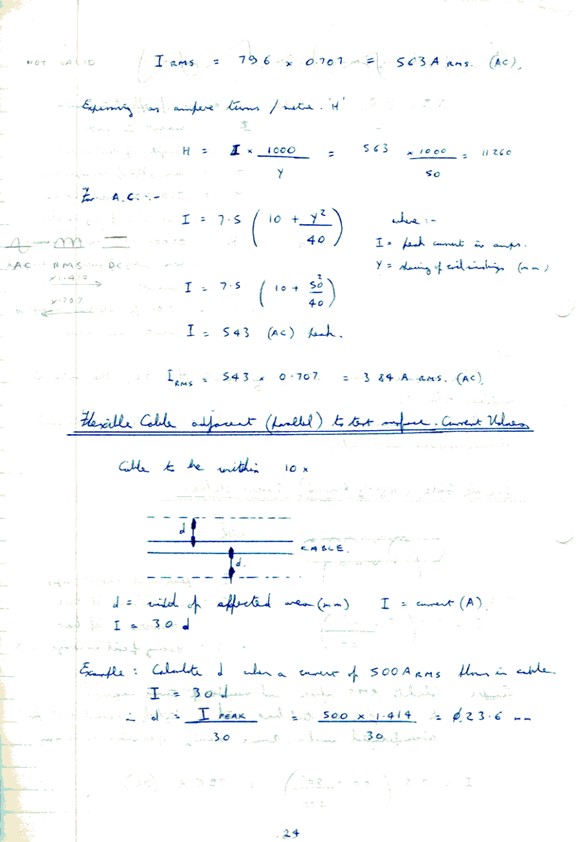 NOT VALID
I RMS = 796 x 0.707 = 563A RMS. (AC).
Expressing as ampere turns / metre 'H'
H = I x 1000 / Y = 563 x 1000 / 50 = 11260
For A.C. :-
I = 7.5 ( 10 + Y² / 40 ) where :-
I = peak current in amps.
Y = spacing of coil windings (mm)
AC RMS DC
x 1.414
x .707
I = 7.5 ( 10 + 50² / 40 )
I = 543 (AC) peak.
I RMS = 543 x 0.707 = 384 A RMS. (AC).
Flexible Cable adjacent (parallel) to test surface. Current Values
Cable to be within 10 x
d
CABLE.
d.
d = width of affected area (mm) I = current (A).
I = 30 d
Example : Calculate d when a current of 500A RMS flows in cable.
I = 30d
∴ d = I PEAK / 30 = 500 x 1.414 / 30 = 23.6 mm
24